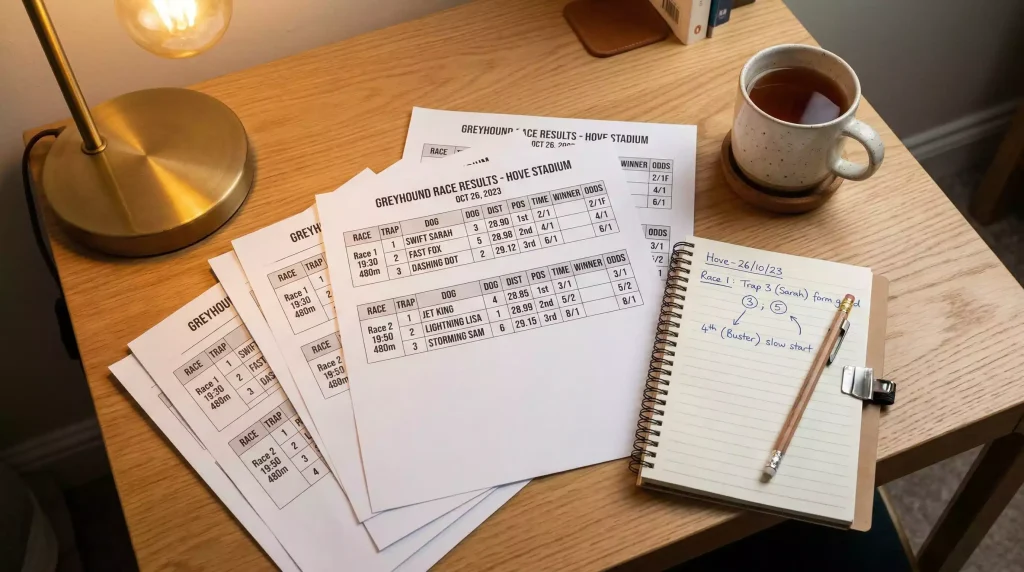 GREYHOUND RACE RESULTS - HOVE STADIUM
RACE
WINNER ODDS
2/1F
4/1
6/1
ODDS
3/1
5/2
GREYHOUND RACE RESULTS - HOVE STADIUM
OCT 26, 2023
RACE TRAP DOG DOG DIST POS TIME WINNER ODDS
Race 1 1 SWIFT SARAH 3 28.90 1st 2/1 2/1F
19:30 2 FAST FOX 5 28.98 2nd 4/1 4/1
480m 3 DASHING DOT 2 29.12 3rd 6/1 6/1
RACE TRAP DOG DIST POS TIME WINNER ODDS
Race 2 1 JET KING 4 28.85 1st 3/1 3/1
19:50 2 LIGHTNING LISA 1 28.99 2nd 5/2 5/2
480m 3 STORMING SAM 6 29.15 3rd 8/1 8/1
GREYH
RACE TRAP
Race 1 1
19:30 2
480m 3
RACE
Race 2
19:50
480m
GREYHOU
RACE TRAP
Race 1 1 SWIF
19:30 2 FAST
480m 3 DAS
RACE TRAP
Race 2 1
19:50 2
480m 3
4
Hove - 26/10/23
Race 1: Trap 3 (Sarah) form
3, 5
4th (Buster) slow start